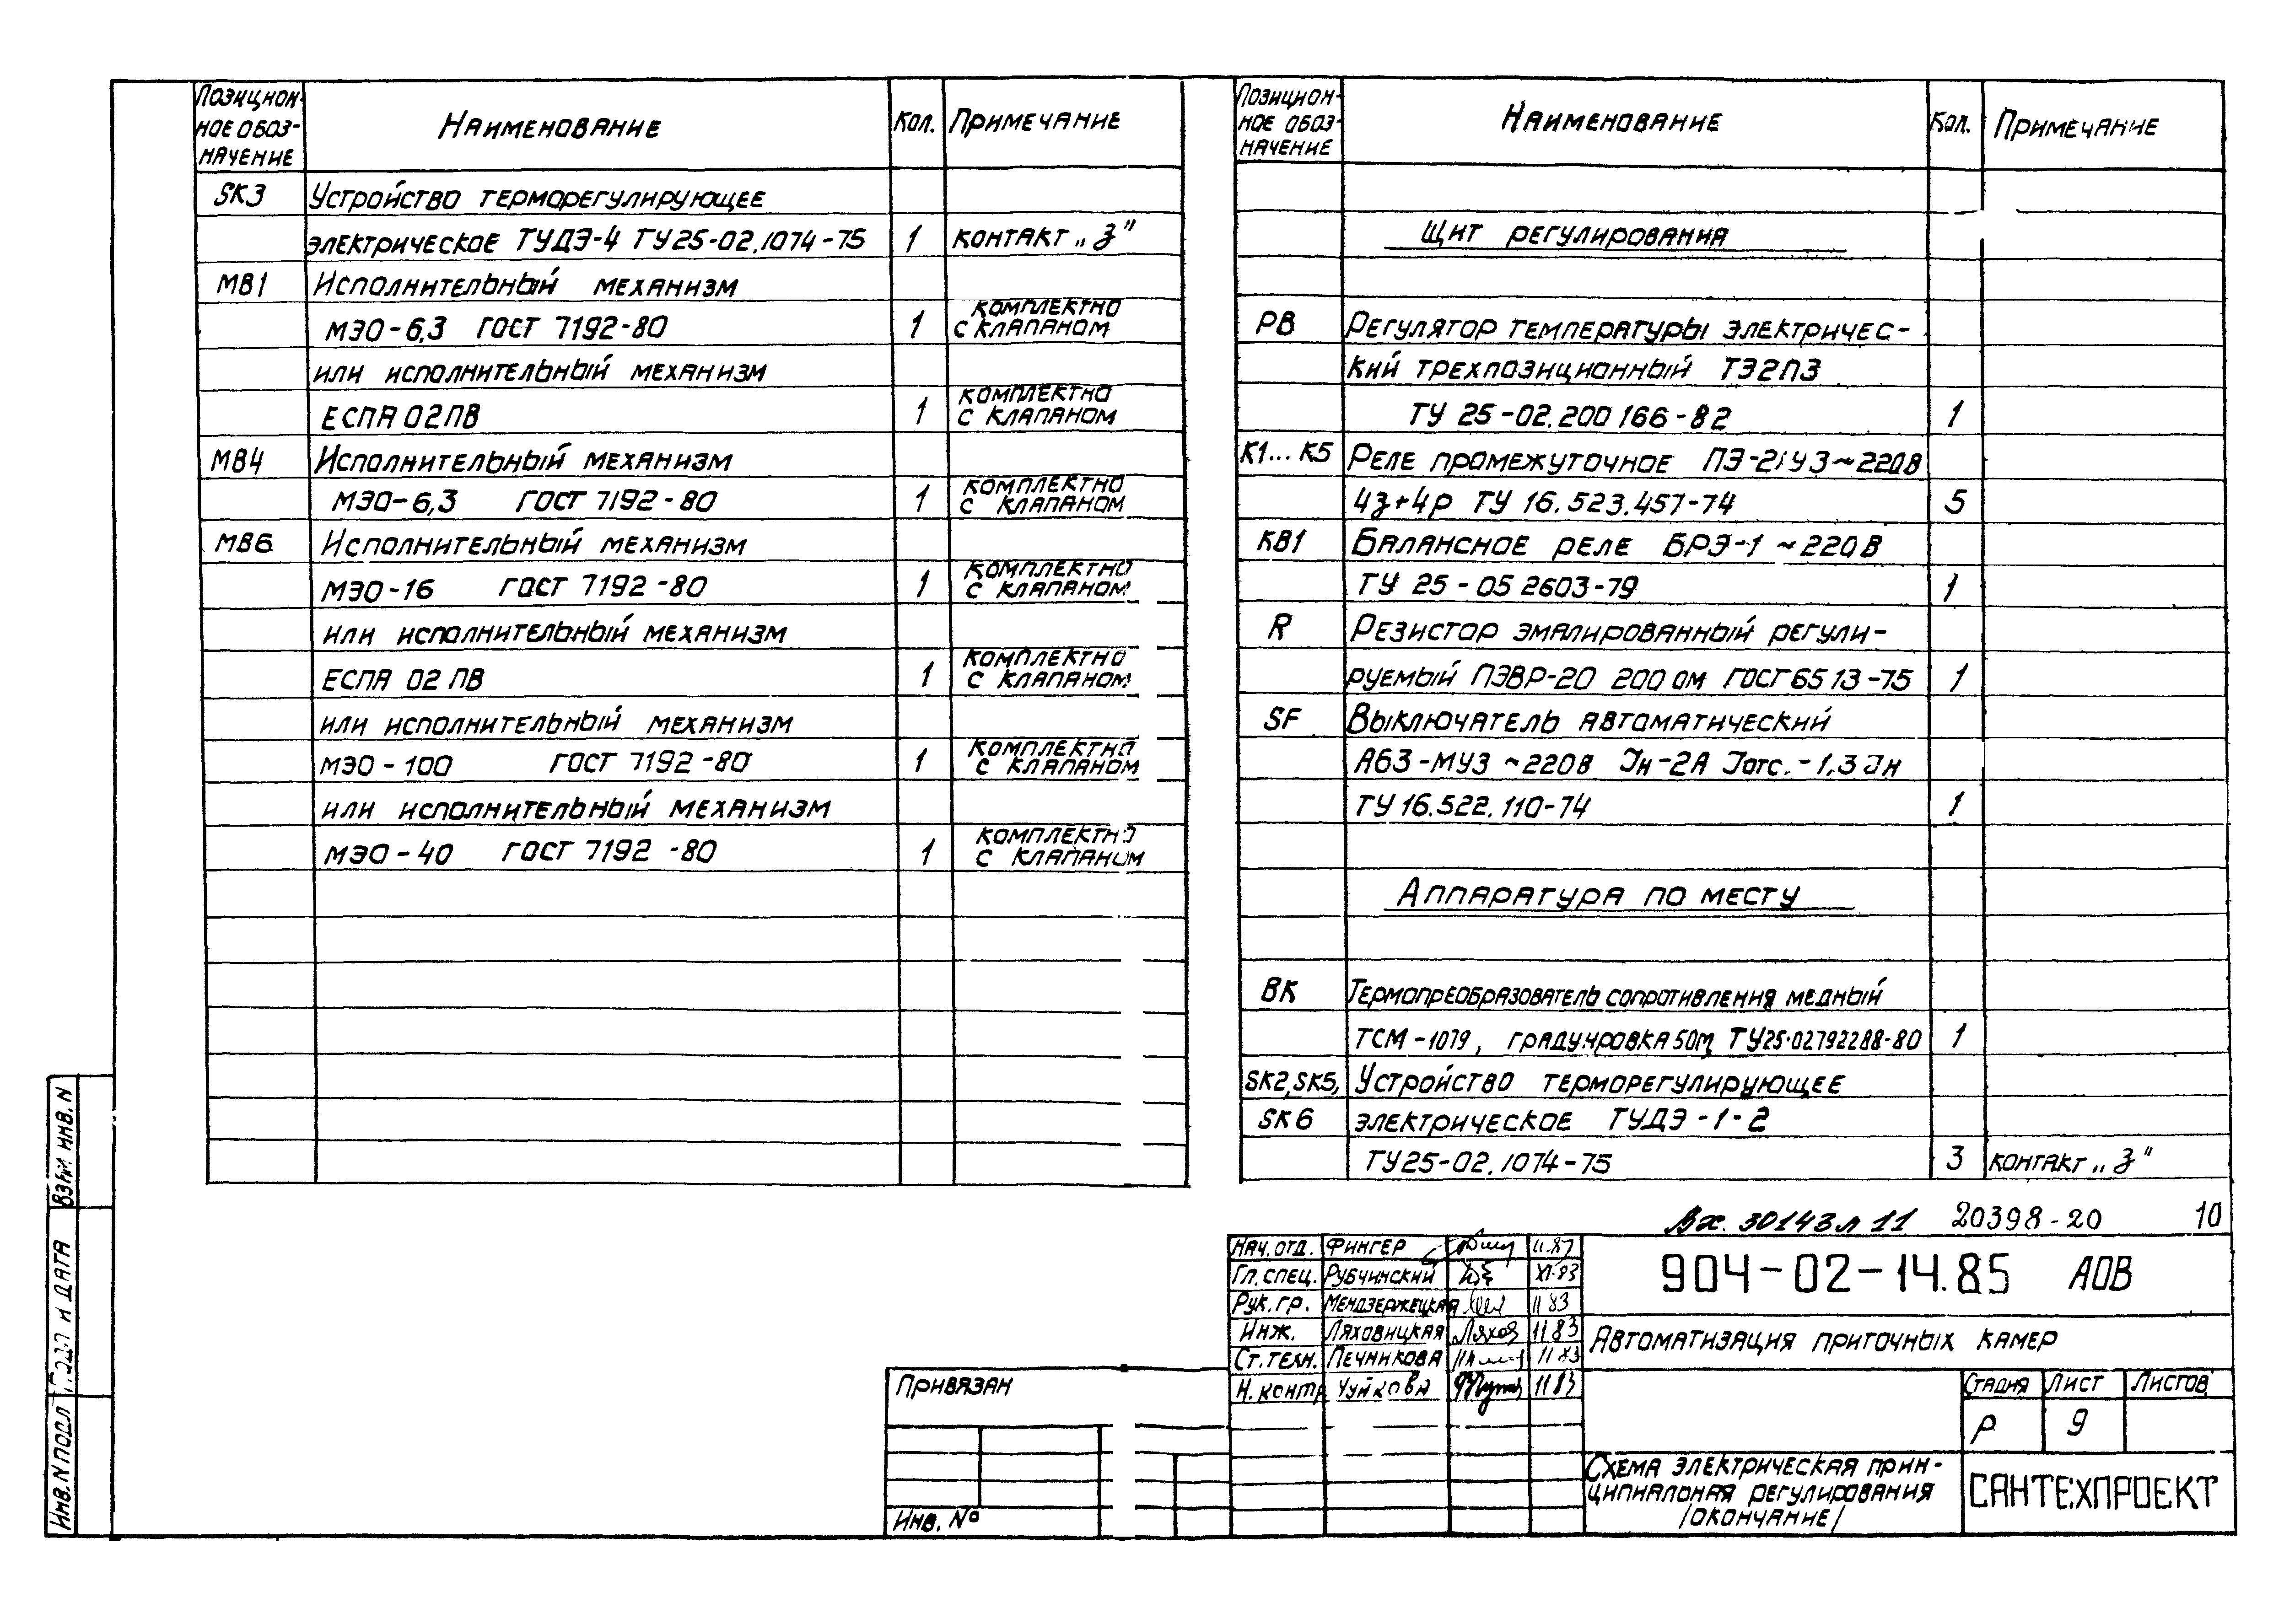 Позицион-
ное обоз-
начение
Наименование
Кол.
Примечание
SK3 Устройство терморегулирующее
электрическое ТУДЭ-4 ТУ25-02.1074-75 1 контакт „З"
МВ1 Исполнительный механизм
МЭО-6,3 ГОСТ 7192-80 1 комплектно
с клапаном
или исполнительный механизм
ЕСПА 02ПВ 1 комплектно
с клапаном
МВ4 Исполнительный механизм
МЭО-6,3 ГОСТ 7192-80 1 комплектно
с клапаном
МВ6 Исполнительный механизм
МЭО-16 ГОСТ 7192-80 1 комплектно
с клапаном
или исполнительный механизм
ЕСПА 02 ПВ 1 комплектно
с клапаном
или исполнительный механизм
МЭО-100 ГОСТ 7192-80 1 комплектно
с клапаном
или исполнительный механизм
МЭО-40 ГОСТ 7192-80 1 комплектно
с клапаном
Позицион-
ное обоз-
начение
Наименование
Кол.
Примечание
Щит регулирования
РВ Регулятор температуры электричес-
кий трехпозиционный ТЭ2ПЗ
ТУ 25-02.200 166-82 1
К1...К5 Реле промежуточное ПЭ-21У3~220В
4з+4р ТУ 16.523.457-74 5
КВ1 Балансное реле БРЭ-1 ~220В
ТУ 25-05 2603-79 1
R Резистор эмалированный регули-
руемый ПЭВР-20 200 ом ГОСТ 6513-75 1
SF Выключатель автоматический
А63-МУ3 ~220В Iн-2А Iотс.-1,3 Iн
ТУ 16.522.110-74 1
Аппаратура по месту
ВК Термопреобразователь сопротивления медный
ТСМ-1079, градуировка 50М, ТУ25-02792288-80 1
SK2, SK5, Устройство терморегулирующее
SK6 электрическое ТУДЭ-1-2
ТУ25-02.1074-75 3 контакт „З"
Вх. 30143л 11 20398-20 10
Нач. отд. Фингер 11.83
Гл. спец. Рубчинский XI-83
Рук. гр. Мендзержецкая 11 83
Инж. Ляховицкая Ляхов 11 83
Ст. техн. Печникова 11 83
Н. контр Чуйкова 11 83
904-02-14.85 АОВ
Автоматизация приточных камер
Стадия Лист Листов
Р 9
Схема электрическая прин-
ципиальная регулирования
/окончание/
САНТЕХПРОЕКТ
Привязан
Инв. №
Взам. инв. N
Подп и дата
Инв. N подл